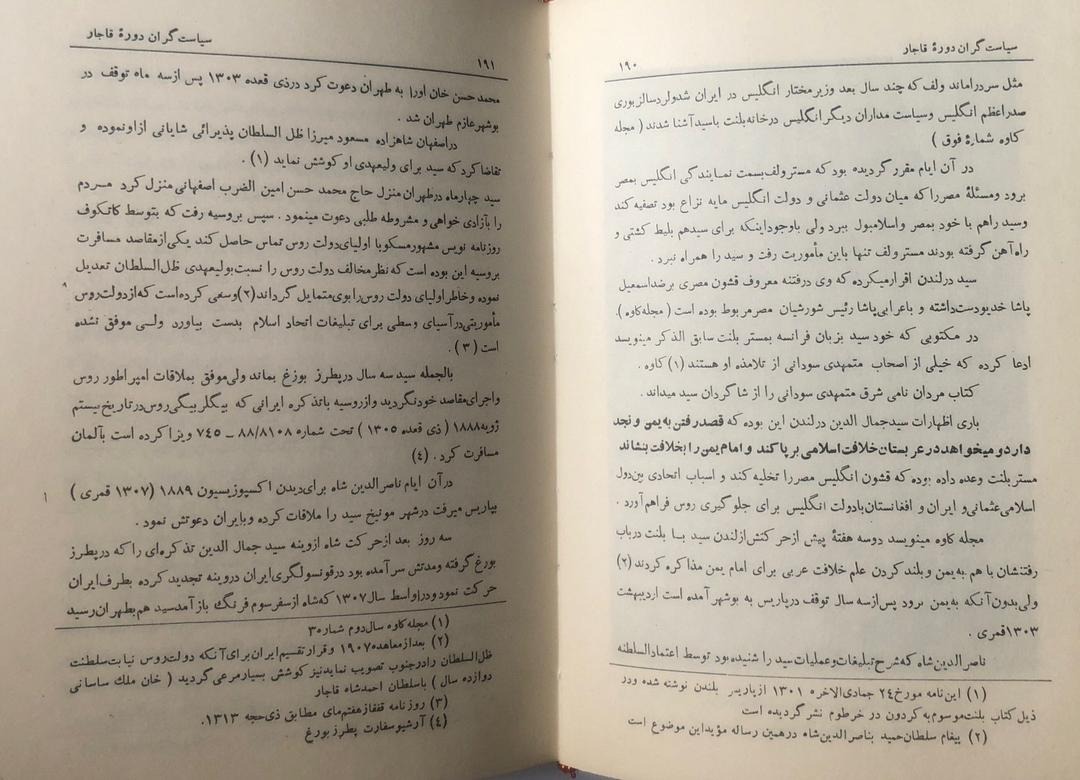 سیاست گران دورهٔ قاجار
۱۹۰
مثل سردراماند ولف که چند سال بعد وزیرمختار انگلیس در ایران شدولردسالزبوری
صدراعظم انگلیس وسیاست مداران دیگرانگلیس درخانه‌بلنت باسیدآشنا شدند ( مجله
کاوه شمارهٔ فوق )
در آن ایام مقرر گردیده بود که مسترولف‌بسمت نمایندگی انگلیس بمصر
برود ومسئلهٔ مصرراکه میان دولت عثمانی و دولت انگلیس مایه نزاع بود تصفیه کند
وسید راهم با خود بمصر واسلامبول ببرد ولی باوجوداینکه برای سیدهم بلیط کشتی و
راه‌آهن گرفته بودند مسترولف تنها باین مأموریت رفت و سید را همراه نبرد .
سید درلندن اقرارمیکرده که وی درفتنه معروف قشون مصری برضداسمعیل
پاشا خدیودست‌داشته و باعرابی‌پاشا رئیس شورشیان مصرمربوط بوده است ( مجله‌کاوه ).
در مکتوبی که خود سید بزبان فرانسه بمستر بلنت سابق الذکر مینویسد
ادعا کرده که خیلی از اصحاب متمهدی سودانی از تلامذه او هستند (۱) کاوه .
کتاب مردان نامی شرق متمهدی سودانی را از شاگردان سید میداند .
باری اظهارات سیدجمال الدین درلندن این بوده که قصدرفتن به‌یمن و نجد
دارد و میخواهد در عربستان خلافت اسلامی برپا کند و امام یمن را بخلافت بنشاند
مستربلنت وعده داده بوده که قشون انگلیس مصررا تخلیه کند و اسباب اتحادی بین‌دول
اسلامی‌عثمانی‌و ایران و افغانستان‌بادولت انگلیس برای جلوگیری روس فراهم‌آورد .
مجله کاوه مینویسد دوسه هفتهٔ پیش ازحرکتش‌ازلندن سید بـا بلنت درباب
رفتنشان با هم به‌یمن وبلندکردن علم خلافت عربی برای امام یمن مذاکره کردند (۲)
ولی‌بدون‌آنکه به‌یمن برود پس‌ازسه سال توقف درپاریس به بوشهرآمده است اردیبهشت
۱۳۰۳قمری .
ناصرالدین‌شاه که‌شرح تبلیغات‌وعملیات‌سید را شنیده‌بود توسط اعتمادالسلطنه
(۱) این‌نامه مورخ۲۴ جمادی‌الاخره ۱۳۰۱ ازپاریس بلندن نوشته شده ودر
ذیل کتاب بلنت‌موسوم‌به‌گردون در خرطوم نشرگردیده است
(۲) پیغام سلطان‌حمید بناصرالدین‌شاه درهمین رساله مؤیداین موضوع است
سیاست گران دورهٔ قاجار
۱۹۱
محمدحسن خان اورا به طهران دعوت کرد درذی قعده ۱۳۰۳ پس ازسه ماه توقف در
بوشهرعازم طهران شد .
دراصفهان شاهزاده مسعود میرزا ظل السلطان پذیرائی شایانی ازاونموده و
تقاضاکردکه سید برای ولیعهدی او کوشش نماید (۱) .
سید چهارماه درطهران منزل حاج محمد حسن امین الضرب اصفهانی منزل کرد مردم
را بآزادی خواهی و مشروطه طلبی دعوت مینمود . سپس بروسیه رفت که بتوسط کاتکوف
روزنامه نویس مشهورمسکوبا اولیای‌دولت روس تماس حاصل کند یکی‌ازمقاصد مسافرت
بروسیه این بوده است‌که نظرمخالف دولت روس را نسبت‌بولیعهدی ظل‌السلطان تعدیل
نموده وخاطراولیای دولت روس‌رابوی‌متمایل گرداند(۲)وسعی کرده‌است که‌ازدولت‌روس
مأموریتی‌درآسیای وسطی برای تبلیغات اتحاد اسلام بدست بیاورد ولـی موفق نشده
است ( ۳ ) .
بالجمله سید سه سال درپطرز بورغ بماند ولی‌موفق بملاقات امپراطور روس
واجرای‌مقاصد خودنگردید وازروسیه باتذکره ایرانی که بیگلربیگی‌روس‌درتاریخ‌بیستم
ژویه۱۸۸۸ ( ذی قعده ۱۳۰۵ ) تحت شماره ۸۸/۸۱۰۸ – ۷۴۵ ویزاکرده است بآلمان
مسافرت کرد . (۴)
درآن ایام ناصرالدین شاه برای‌دیدن اکسپوزیسیون ۱۸۸۹ (۱۳۰۷ قمری )
بپاریس میرفت درشهر مونیخ سید را ملاقات کرده وبایران دعوتش نمود .
سه روز بعد ازحرکت شاه ازوینه سید جمال الدین تذکره‌ای را که درپطرز
بورغ گرفته ومدتش سرآمده بود درقونسولگری‌ایران دروینه تجدید کرده بطرف‌ایران
حرکت نمودودراواسط سال۱۳۰۷ که‌شاه ازسفرسوم فرنگ بازآمدسید هم‌بطهران‌رسید
(۱) مجله‌کاوه سال‌دوم شماره۳
(۲) بعدازمعاهده ۱۹۰۷ وقرارتقسیم‌ایران‌برای‌آنکه دولت‌روس نیابت‌سلطنت
ظل‌السلطان رادرجنوب تصویب نمایدنیز کوشش بسیارمرعی‌گردید ( خان ملك ساسانی
دوازده سال ) باسلطان احمدشاه قاجار
(۳) روزنامه قفقازهفتم‌مای مطابق ذی‌حجه ۱۳۱۳.
(۴) آرشیوسفارت پطرزبورغ